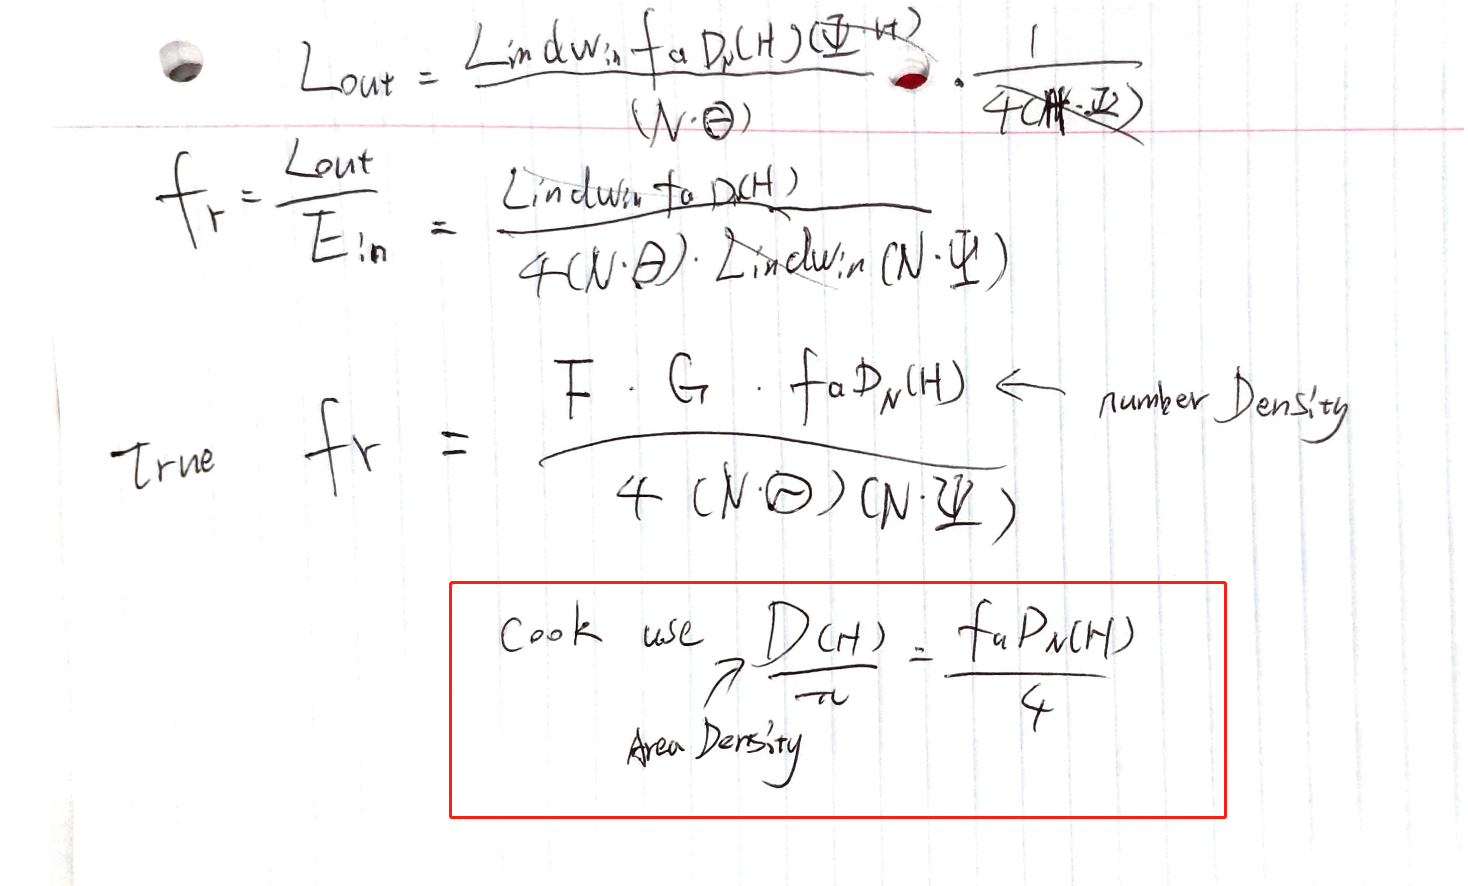 Lout = Lindwin fa DN(H)(Ψ·H) / (N·Θ) · 1 / 4(H·Ψ)
fr = Lout / Ein = Lindwin fa D(H) / 4(N·Θ)·Lindwin(N·Ψ)
True fr = F · G · faDN(H) / 4 (N·Θ)(N·Ψ) ← number Density
Cook use D(H) / π = faDN(H) / 4
Area Density